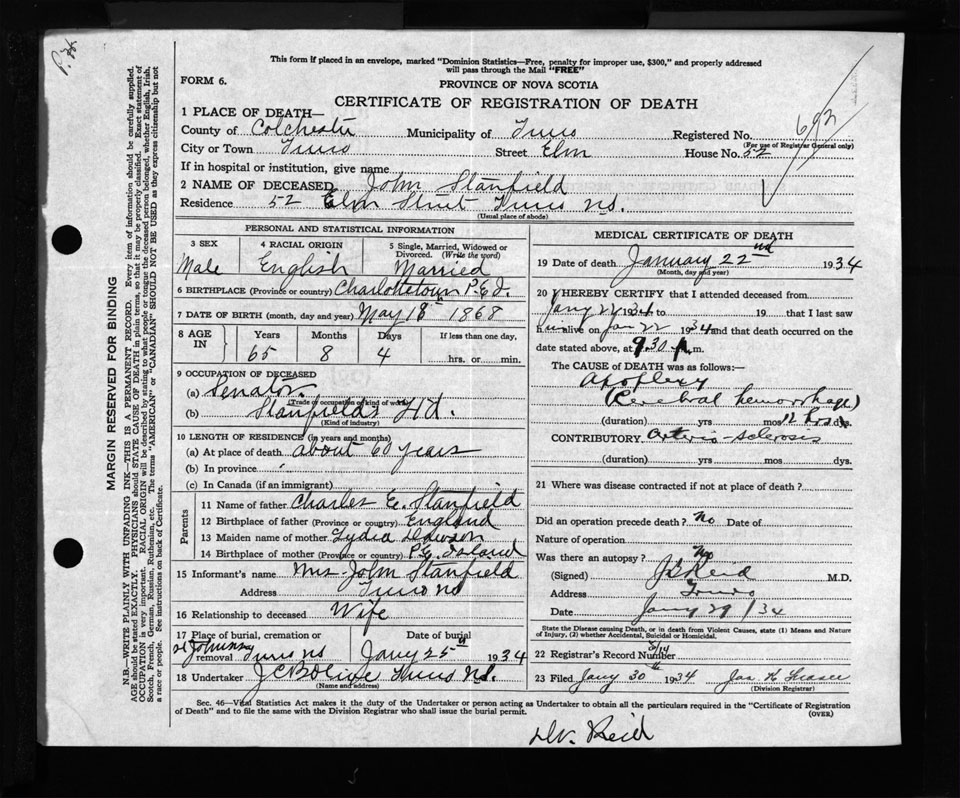 P. 3
This form if placed in an envelope, marked "Dominion Statistics—Free, penalty for improper use, $300," and properly addressed
will pass through the Mail "FREE"
FORM 6.
PROVINCE OF NOVA SCOTIA
CERTIFICATE OF REGISTRATION OF DEATH
1 PLACE OF DEATH—
County of Colchester Municipality of Truro Registered No. 692
(For use of Registrar General only)
City or Town Truro Street Elm House No. 52
If in hospital or institution, give name
2 NAME OF DECEASED John Stanfield
Residence 52 Elm Street Truro N.S.
(Usual place of abode)
PERSONAL AND STATISTICAL INFORMATION
3 SEX Male
4 RACIAL ORIGIN English
5 Single, Married, Widowed or
Divorced. (Write the word)
Married
6 BIRTHPLACE (Province or country) Charlottetown P.E.I.
7 DATE OF BIRTH (month, day and year) May 18th 1868
8 AGE IN Years Months Days If less than one day,
65 8 4 hrs. or min.
9 OCCUPATION OF DECEASED
(a) Senator.
(Trade or occupation or kind of work)
(b) Stanfield's Ltd.
(Kind of industry)
10 LENGTH OF RESIDENCE (in years and months)
(a) At place of death about 60 years
(b) In province
(c) In Canada (if an immigrant)
Parents
11 Name of father Charles E. Stanfield
12 Birthplace of father (Province or country) England
13 Maiden name of mother Lydia Dawson
14 Birthplace of mother (Province or country) P.E. Island
15 Informant's name Mrs John Stanfield
Address Truro NS
16 Relationship to deceased Wife
17 Place of burial, cremation or
removal Truro NS
Date of burial
Jany 25th 1934
18 Undertaker Truro N.S.
(Name and address)
MEDICAL CERTIFICATE OF DEATH
19 Date of death January 22nd 1934
(Month, day and year)
20 I HEREBY CERTIFY that I attended deceased from
Jany 22 1934 to 19 that I last saw
him alive on Jan 22 1934 and that death occurred on the
date stated above, at 9.30 P.m.
The CAUSE of DEATH was as follows:—
Apoplexy
(Cerebral hemorrhage)
(duration) yrs mos 12 hrs dys.
CONTRIBUTORY. Arterio-sclerosis
(duration) yrs mos dys.
21 Where was disease contracted if not at place of death?
Did an operation precede death? No Date of
Nature of operation
Was there an autopsy? No
(Signed) Reid M.D.
Address Truro
Date Jany 29/34
State the Disease causing Death, or in death from Violent Causes, state (1) Means and
Nature of Injury, (2) whether Accidental, Suicidal or Homicidal.
22 Registrar's Record Number
23 Filed Jany 30th 1934 Jas. K Fraser
(Division Registrar)
Sec. 46—Vital Statistics Act makes it the duty of the Undertaker or person acting as Undertaker to obtain all the particulars required in the "Certificate of Registration
of Death" and to file the same with the Division Registrar who shall issue the burial permit.
(OVER)
Dr. Reid
MARGIN RESERVED FOR BINDING
N.B.—WRITE PLAINLY WITH UNFADING INK—THIS IS A PERMANENT RECORD. Every item of information should be carefully supplied.
AGE should be stated EXACTLY. PHYSICIANS should STATE CAUSE OF DEATH in plain terms, so that it may be properly classified. Exact statement of
OCCUPATION is very important. RACIAL ORIGIN will be described by stating to what people or tongue the deceased person belonged, whether English, Irish,
Scotch, French, German, Russian, Ruthenian, etc. The terms "AMERICAN" or "CANADIAN" SHOULD NOT BE USED as they express citizenship but not
a race or people. See instructions on back of Certificate.